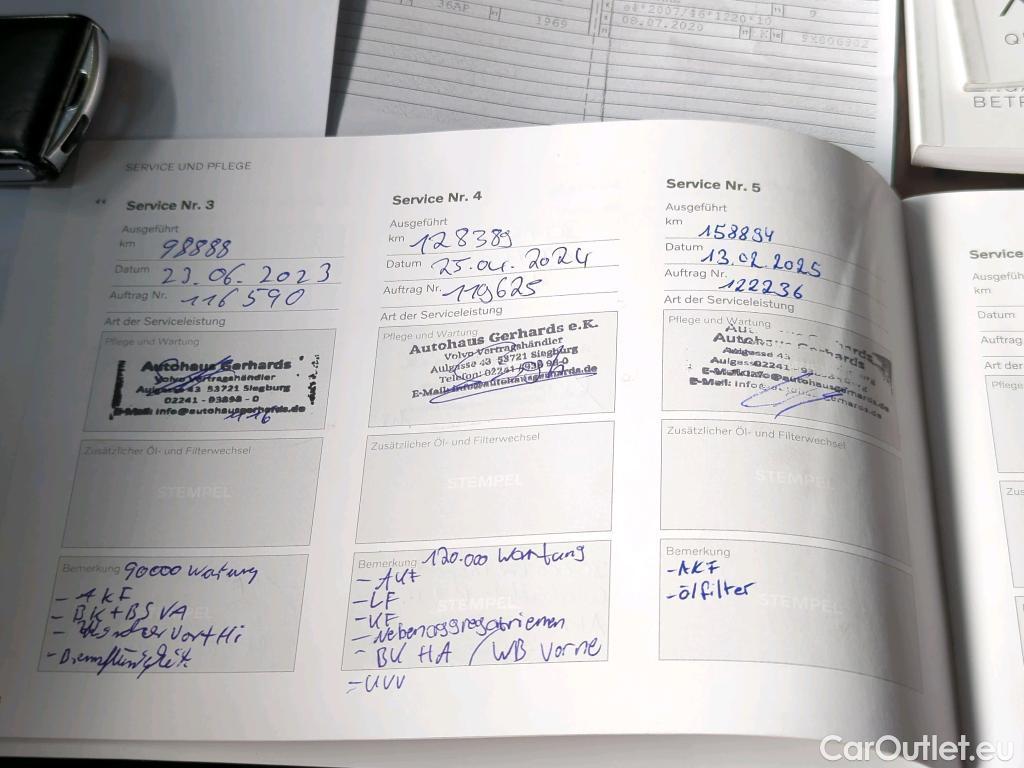 36AP
9
1969
08.07.2020
K
BETR
SERVICE UND PFLEGE
Service Nr. 3
Ausgeführt
km 98888
Datum 23.06.2023
Auftrag Nr. 116590
Art der Serviceleistung
Pflege und Wartung
Autohaus Gerhards
Volvo Vertragshändler
Aulgasse 43 53721 Siegburg
02241 - 93898 - 0
E-Mail: info@autohausgerhards.de
Zusätzlicher Öl- und Filterwechsel
STEMPEL
Bemerkung 90000 Wartung
- AKF
- BK+BS VA
Vor+Hi
Service Nr. 4
Ausgeführt
km 128389
Datum 25.04.2024
Auftrag Nr. 119625
Art der Serviceleistung
Pflege und Wartung
Autohaus Gerhards e.K.
Volvo Vertragshändler
Aulgasse 43 53721 Siegburg
Telefon: 02241
E-Mail: info@autohausgerhards.de
Zusätzlicher Öl- und Filterwechsel
STEMPEL
Bemerkung 120.000 Wartung
- AKF
- LF
- KF
- Nebenaggregatriemen
- BK HA / WB Vorne
- UVV
Service Nr. 5
Ausgeführt
km 158894
Datum 13.02.2025
Auftrag Nr. 122236
Art der Serviceleistung
Pflege und Wartung
Autohaus Gerhards
Aulgasse 43
Zusätzlicher Öl- und Filterwechsel
STEMPEL
Bemerkung
- AKF
- Ölfilter
STEMPEL
Service
Ausgeführt
km
Datum
Auftrag
Art der
Pflege
Zus
CarOutlet.eu